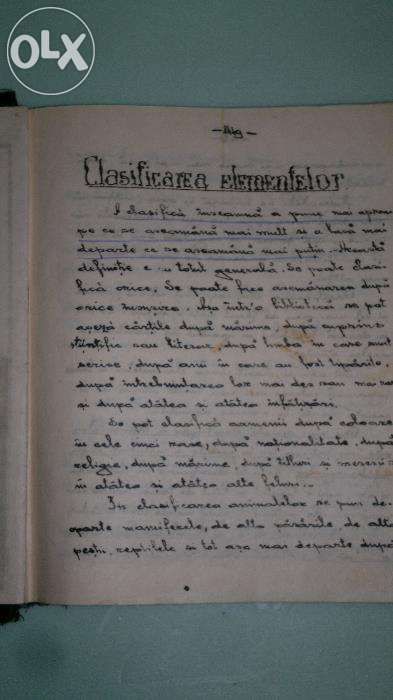 OLX
Clasificarea elementelor
A clasifică înseamnă a pune mai aproa
pe ce se aseamănă mai mult și a lăsă mai
departe ce se aseamănă mai puțin. Această
definiție e totul generală. Se poate clasi
fică orice. Se poate face asemănarea după
orice însușire. Așa într'o bibliotecă se pot
așeză cărțile după mărime, după cuprins
științific sau literar, după limba în care sunt
scrise, după anii în care au fost tipărite,
după întrebuințarea lor mai des sau mai rar
și după atâtea și atâtea înfățișări.
Se pot clasifică oamenii după coloare
în cele cinci rase, după naționalitate, după
religie, după mărime, după titluri și meserii
în atâtea și atâtea alte feluri...
În clasificarea animalelor se pun de-
oparte mamiferele, de alta păsările, de alta
pești, reptilele și tot așa mai departe după